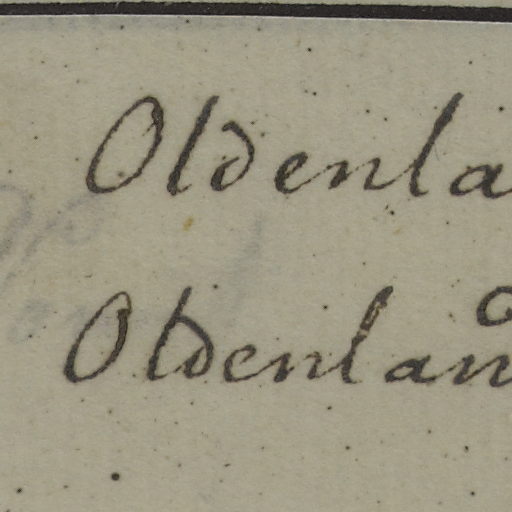 Oldenla
Oldenlan